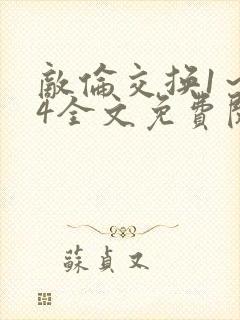 敵倫交換1～
4全文免費
蘇貞又